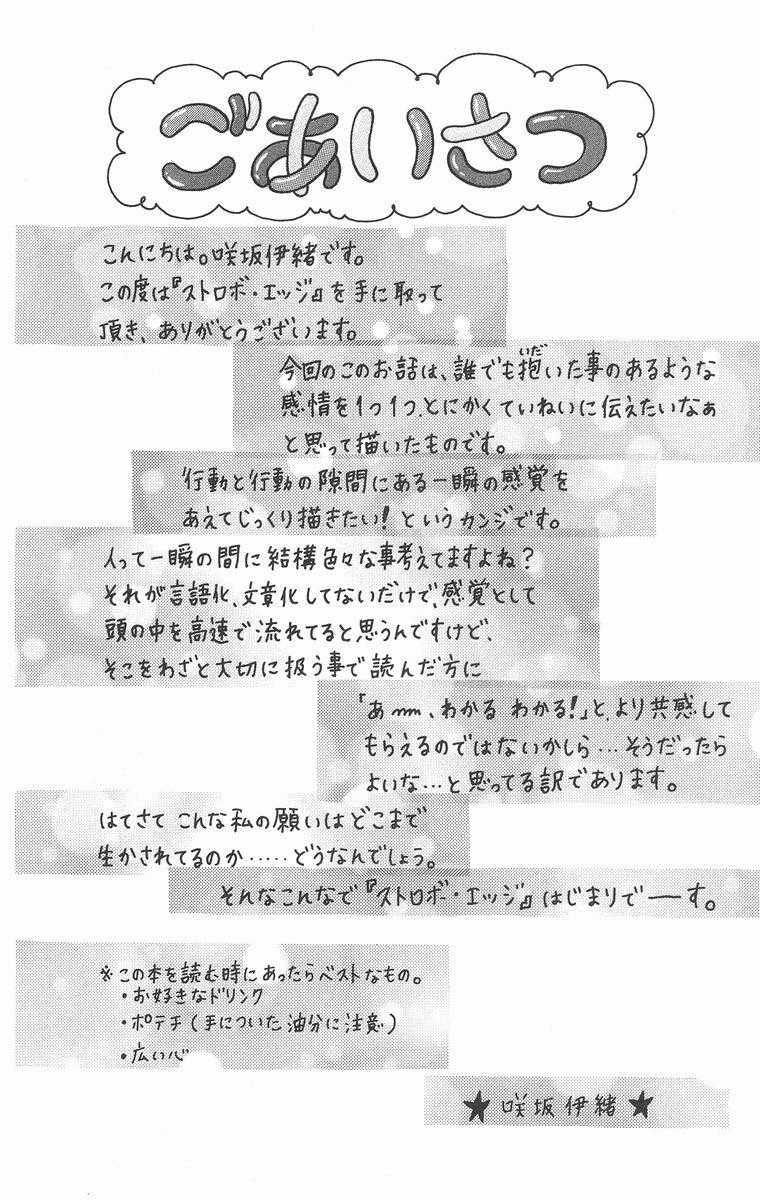 ごあいさつ
こんにちは。咲坂伊緒です。
この度は『ストロボ・エッジ』を手に取って
頂き、ありがとうございます。
今回のこのお話は、誰でも抱いた事のあるような
いだ
感情を1つ1つ、とにかくていねいに伝えたいなぁ
と思って描いたものです。
行動と行動の隙間にある一瞬の感覚を
あえてじっくり描きたい!というカンジです。
人って一瞬の間に結構色々な事考えてますよね?
それが言語化、文章化してないだけで、感覚として
頭の中を高速で流れてると思うんですけど、
そこをわざと大切に扱う事で読んだ方に
「あー、わかるわかる!」と、より共感して
もらえるのではないかしら…そうだったら
よいな…と思ってる訳であります。
はてさてこんな私の願いはどこまで
生かされてるのか……どうなんでしょう。
そんなこんなで『ストロボ・エッジ』はじまりで――す。
※この本を読む時にあったらベストなもの。
・お好きなドリンク
・ポテチ(手についた油分に注意)
・広い心
★咲坂伊緒★